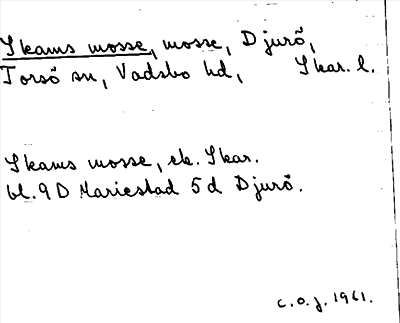 Skams mosse, mosse, Djurö,
Torsö sn, Vadsbo hd, Skar. l.
Skams mosse, ek. Skar.
bl. 9D Mariestad 5d Djurö.
c.o.j. 1961.